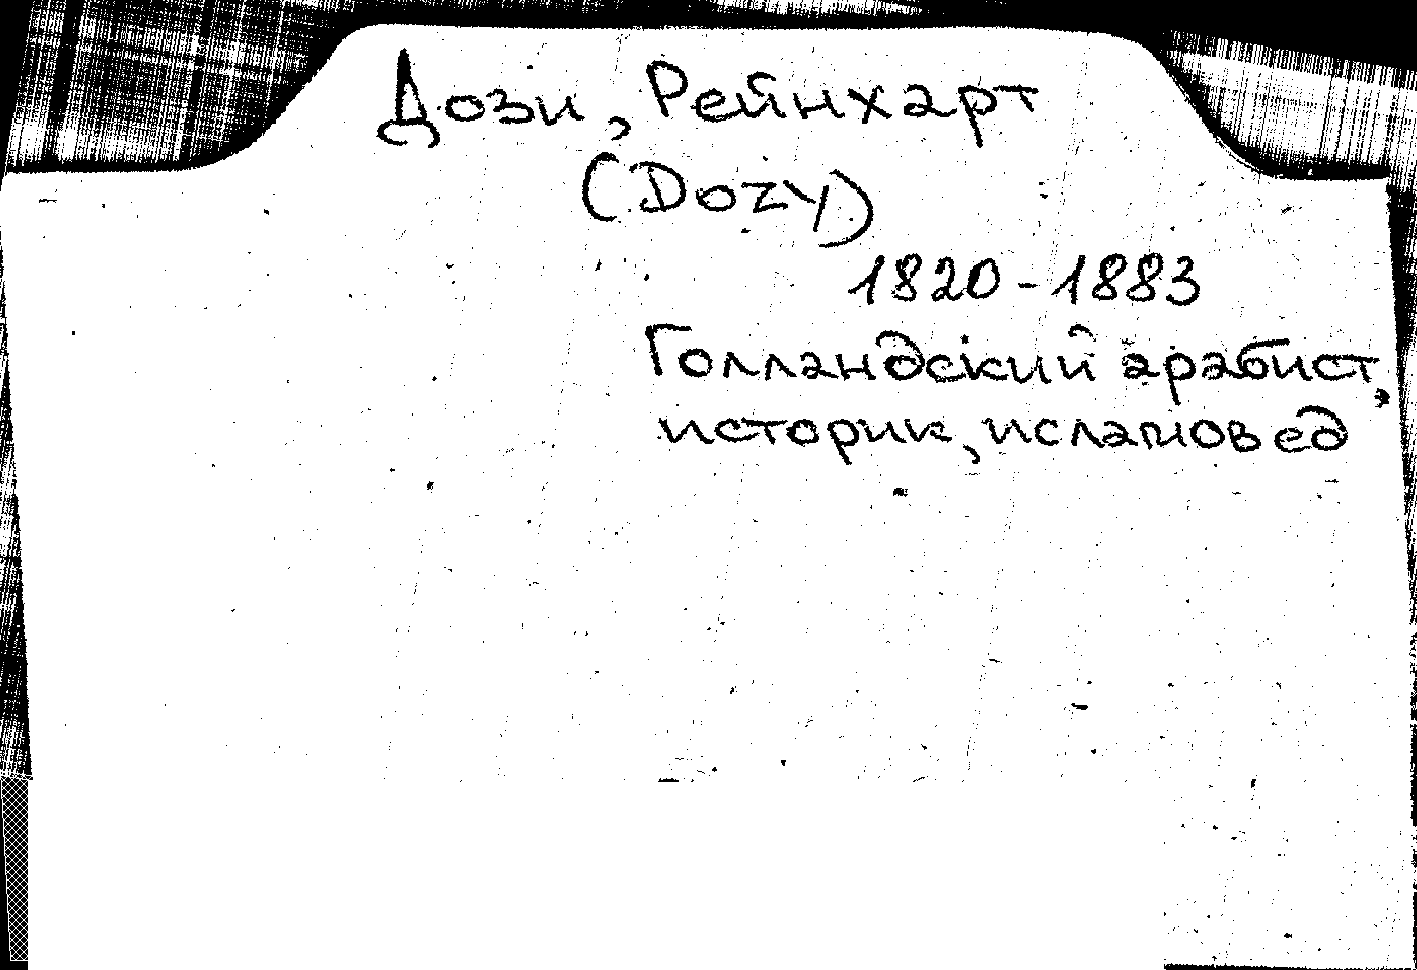 Дози, Рейнхарт
(Dozy)
1820-1883
Голландский арабист,
историк, исламовед